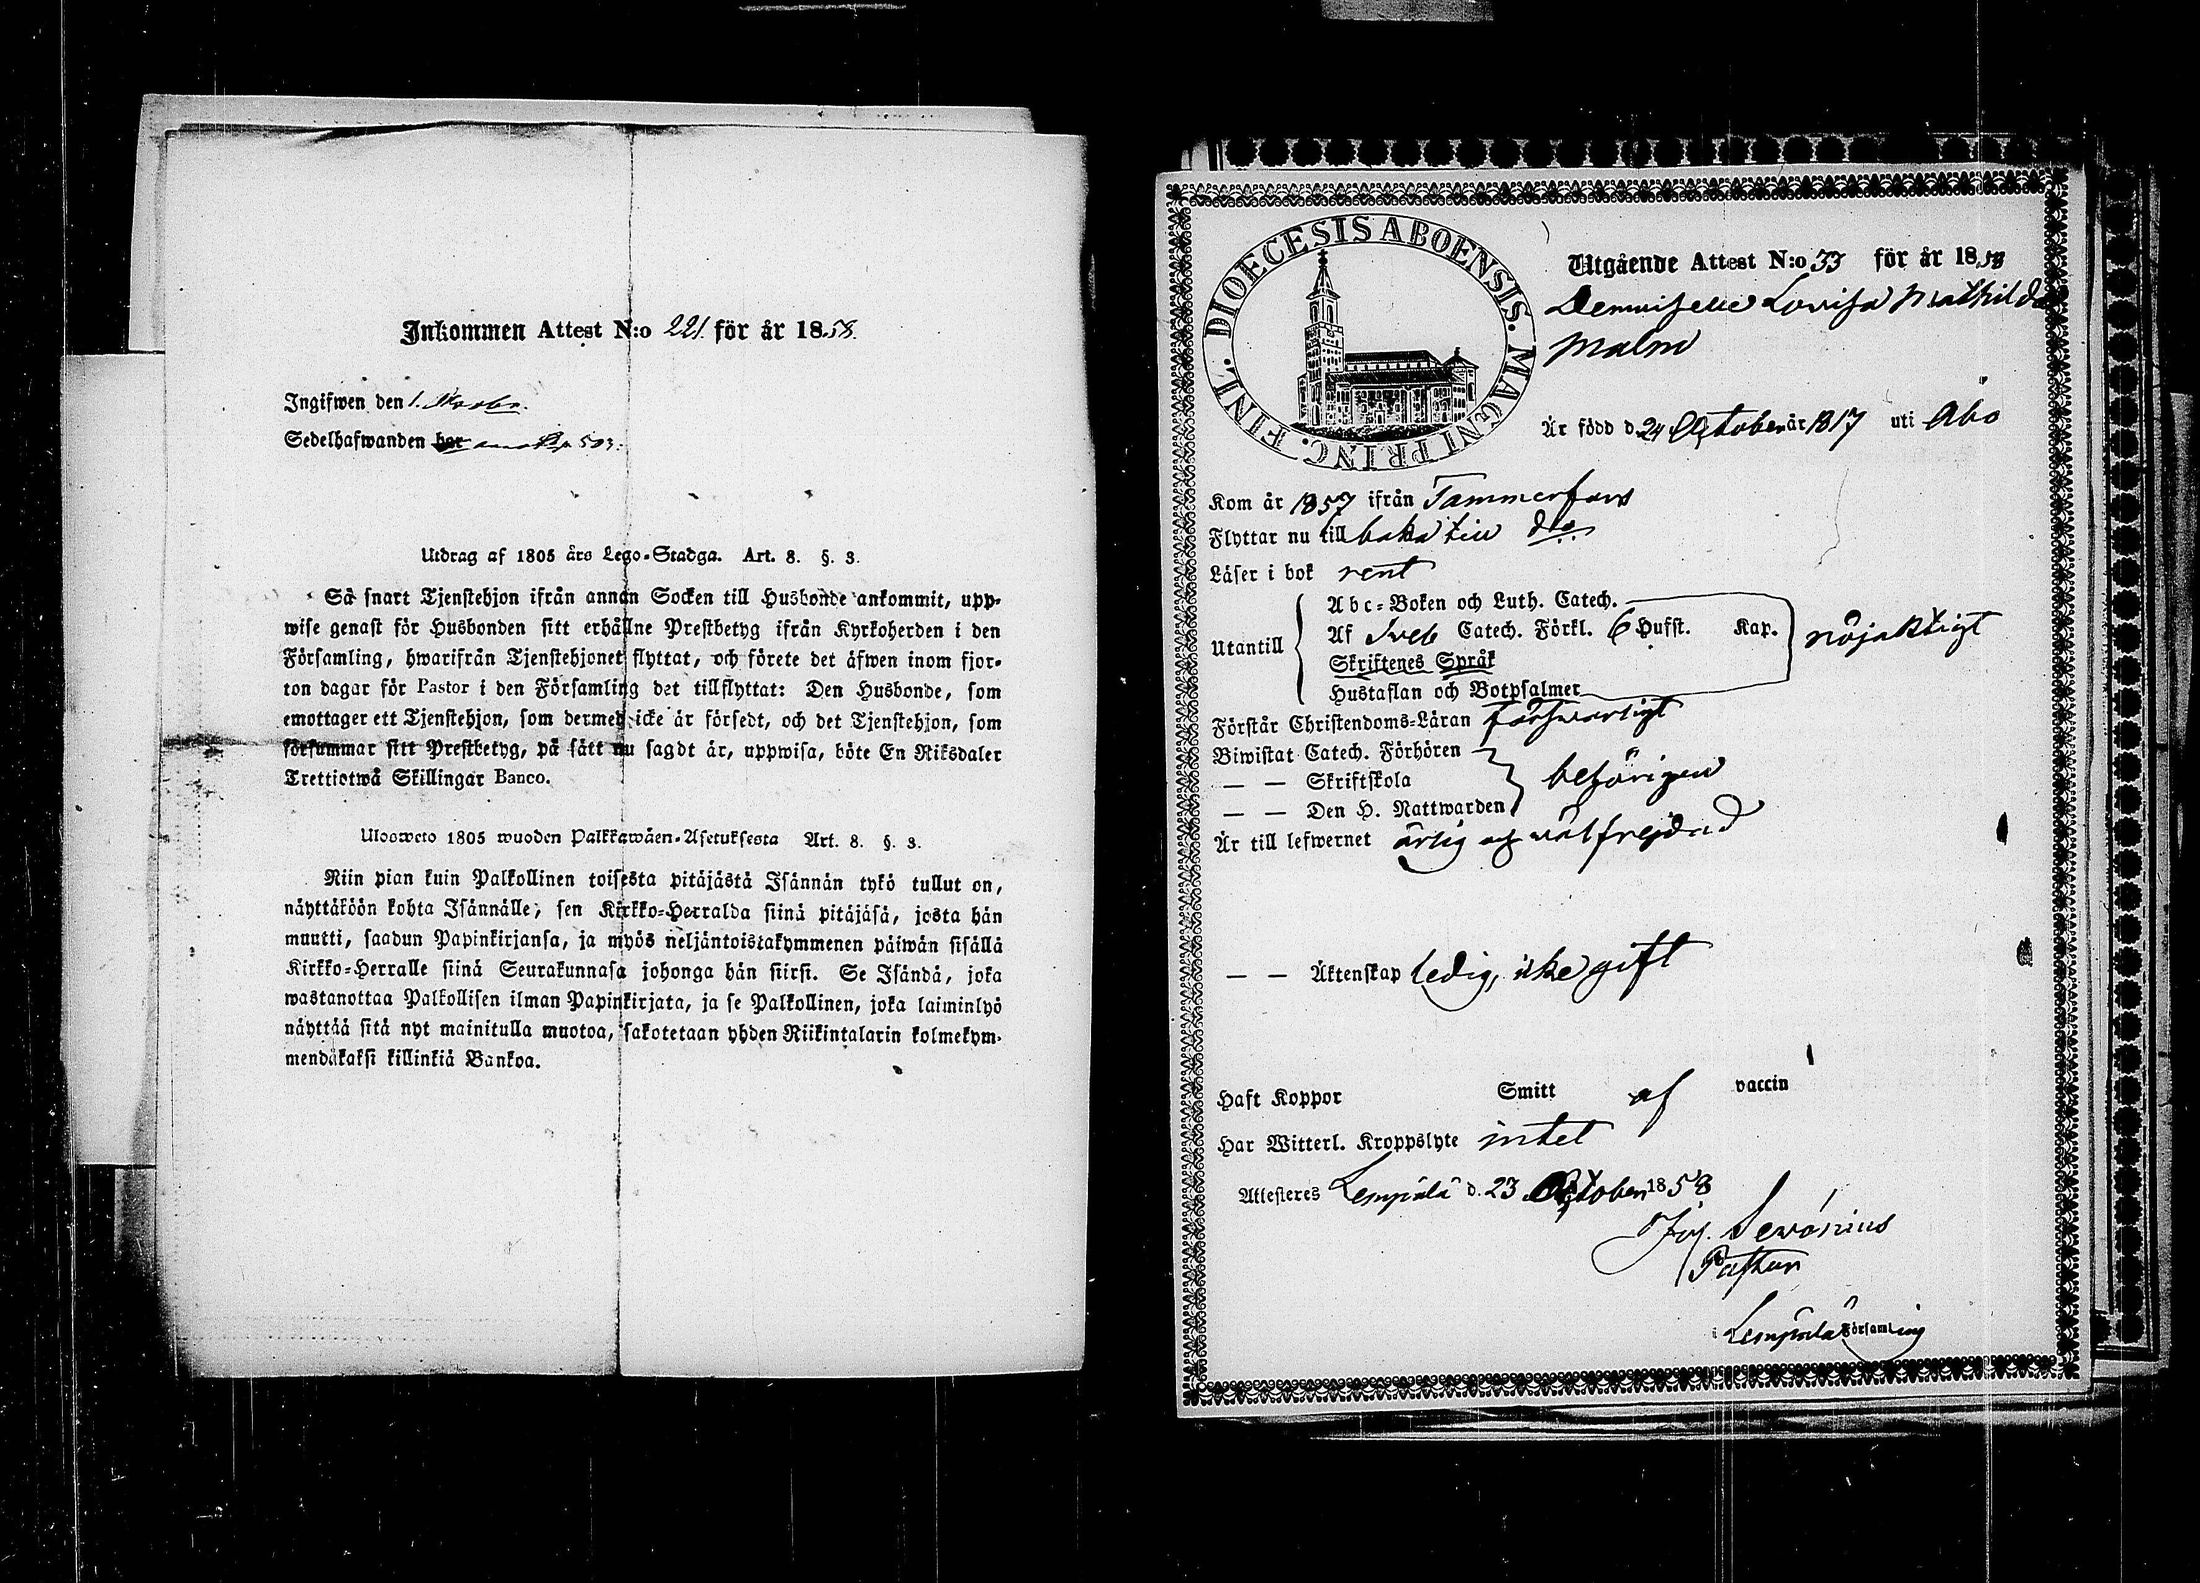 Inkommen Attest N:o 221. för år 1858.
Ingifwen den 1. Novbr.
Sedelhafwanden har 503.
Utdrag af 1805 års Lego-Stadga. Art. 8. §. 3.
Så snart Tjenstehjon ifrån annan Socken till Husbonde ankommit, upp-
wise genast för Husbonden sitt erhållne Prestbetyg ifrån Kyrkoherden i den
Församling, hwarifrån Tjenstehjonet flyttat, och förete det äfwen inom fjor-
ton dagar för Pastor i den Församling det tillflyttat: Den Husbonde, som
emottager ett Tjenstehjon, som dermed icke är försedt, och det Tjenstehjon, som
försummar sitt Prestbetyg, på sätt nu sagdt är, uppwisa, böte En Riksdaler
Trettiotwå Skillingar Banco.
Ulosweto 1805 wuoden Palkkawäen-Asetuksesta Art. 8. §. 3.
Niin pian kuin Palkollinen toisesta pitäjästä Isännän tykö tullut on,
näyttäköön kohta Isännälle, sen Kirkko-Herralda siinä pitäjäsä, josta hän
muutti, saadun Papinkirjansa, ja myös neljäntoistakymmenen päiwän sisällä
Kirkko-Herralle siinä Seurakunnasa johonga hän siirsi. Se Isändä, joka
wastanottaa Palkollisen ilman Papinkirjata, ja se Palkollinen, joka laiminlyö
näyttää sitä nyt mainitulla muotoa, sakotetaan yhden Riikintalarin kolmekym-
mendäkaksi killinkiä Bankoa.
DIOECESIS ABOENSIS. MAGNI PRINC. FINL.
Utgående Attest N:o 33 för år 1858
Demoiselle Lovisa Mathilda
Malm
Är född d. 24 October år 1817 uti Åbo
Kom år 1857 ifrån Tammerfors
Flyttar nu tillbaka till do
Läser i bok rent
Utantill
Abc-Boken och Luth. Catech.
Af Sveb Catech. Förkl. 6 Hufst. Kap.
Skriftenes Språk
Hustaflan och Botpsalmer
nöjaktigt
Förstår Christendoms-Läran försvarligt
Biwistat Catech. Förhören
— — Skriftskola
— — Den H. Nattwarden
behörigen
Är till lefwernet ärlig och välfrejdad
— — Äktenskap ledig, icke gift
Haft Koppor Smitt af vaccin
Har Witterl. Kroppslyte intet
Attesteres Lempälä d. 23 October 1858
Sevonius
Pastor
i Lempälä Församling